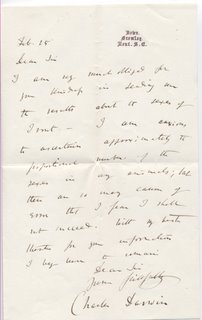 Down.
Bromley.
Kent. S.E.
Feb. 28
Dear Sir
I am very much obliged for
your kindness in sending me
the results about the sexes of
I am anxious
to ascertain approximately the
proportional number of the
sexes in any animals; but
there are so many causes of
error that I fear I shall
not succeed. With my best
thanks for your information
I beg leave to remain
Dear Sir
Yours faithfully
Charles Darwin